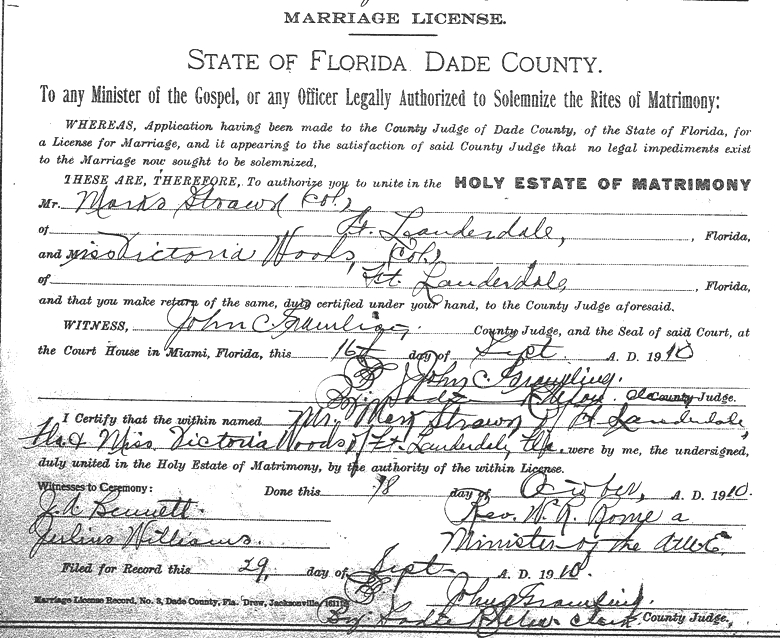 MARRIAGE LICENSE.
STATE OF FLORIDA DADE COUNTY.
To any Minister of the Gospel, or any Officer Legally Authorized to Solemnize the Rites of Matrimony:
WHEREAS, Application having been made to the County Judge of Dade County, of the State of Florida, for
a License for Marriage, and it appearing to the satisfaction of said County Judge that no legal impediments exist
to the Marriage now sought to be solemnized,
THESE ARE, THEREFORE, To authorize you to unite in the HOLY ESTATE OF MATRIMONY
Mr. Marks Strawn (Col,)
of Ft. Lauderdale, , Florida,
and Miss Victoria Woods, (Col,)
of Ft. Lauderdale , Florida,
and that you make return of the same, duly certified under your hand, to the County Judge aforesaid.
WITNESS, John C. Gramling, County Judge, and the Seal of said Court, at
the Court House in Miami, Florida, this 16 day of Sept A. D. 1910
John C. Gramling.
By County Judge.
I Certify that the within named Mr. Mark Strawn of Ft Lauderdale,
Fla. & Miss. Victoria Woods of Ft. Lauderdale, Fla. were by me, the undersigned,
duly united in the Holy Estate of Matrimony, by the authority of the within License.
Witnesses to Ceremony: Done this 18 day of October, A. D. 1910.
J. A. Bennett. Rev. W. R. Rome a
Julius Williams. Minister of the A.M.E.
Filed for Record this 29, day of Sept A. D. 1910.
John C Gramling.
Marriage License Record, No. 3, Dade County, Fla. Drew, Jacksonville, By County Judge.